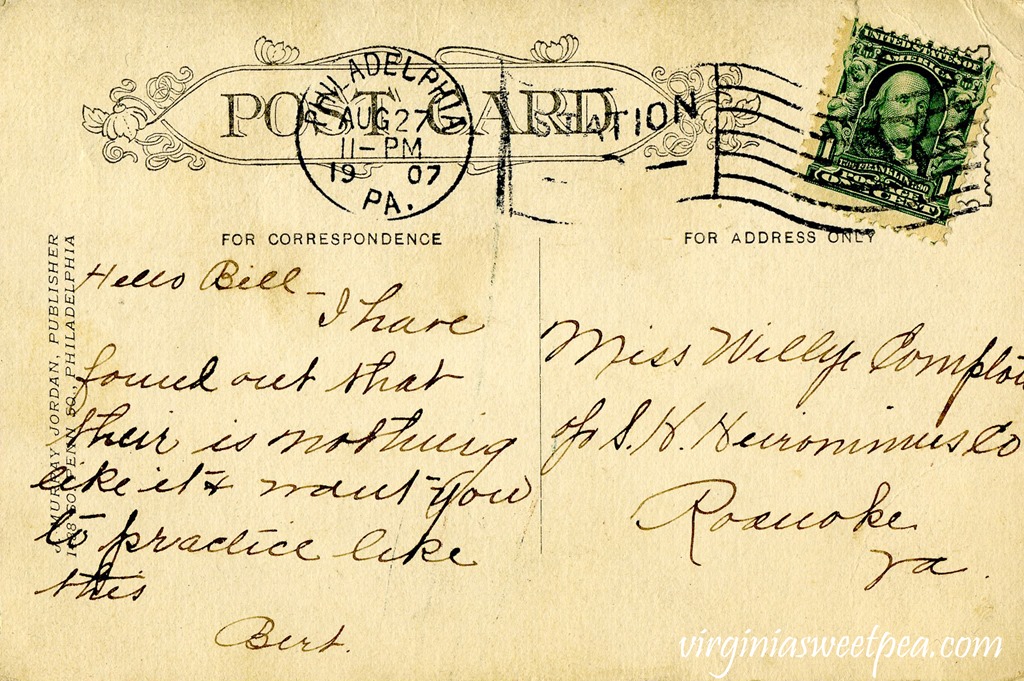 POST CARD
PHILADELPHIA
AUG 27
11-PM
19 07
PA.
STATION
UNITED STATES OF
AMERICA
1706 FRANKLIN 1790
1 1
ONE CENT
FOR CORRESPONDENCE
FOR ADDRESS ONLY
MURRAY JORDAN, PUBLISHER
SO. PENN SQ., PHILADELPHIA
Hello Bill –
I have
found out that
their is nothing
like it & want you
to practice like
this
Bert.
Miss Willye Compton
of S. H. Heironimus Co
Roanoke
Va.
virginiasweetpea.com